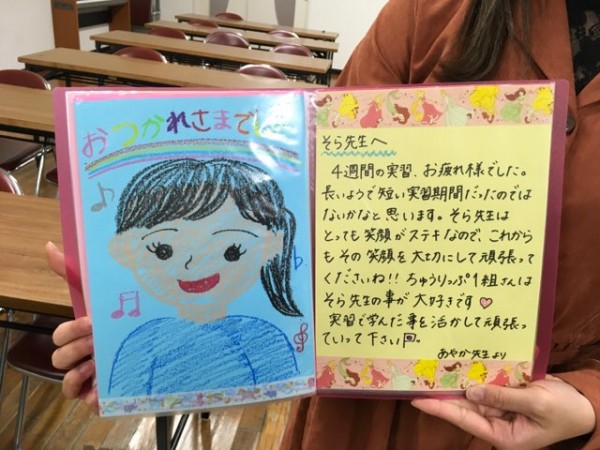 おつかれさまでした
そら先生へ
4週間の実習、お疲れ様でした。
長いようで短い実習期間だったのでは
ないかなと思います。そら先生は
とっても笑顔がステキなので、これから
もその笑顔を大切にして頑張って
くださいね!!ちゅうりっぷ1組さんは
そら先生の事が大好きです♡
実習で学んだ事を活かして頑張っ
ていって下さい。
あやか先生より